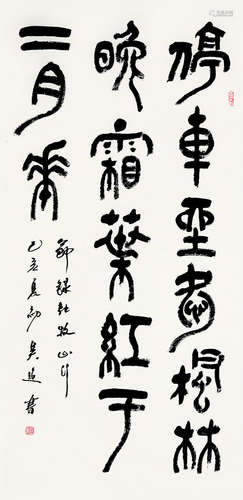 停車坐愛楓林
晚霜葉紅于
二月花
節錄杜牧山行
己亥夏初吳書